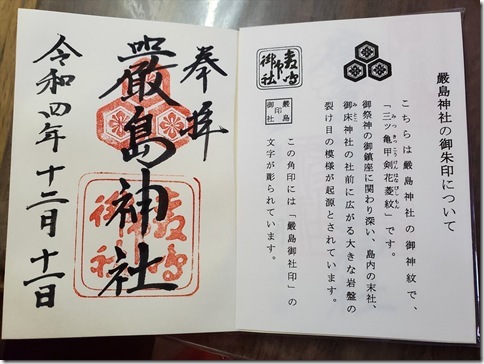 嚴島神社の御朱印について
こちらは嚴島神社の御神紋で、
みつきっこうけんはなびしもん
「三ツ亀甲剣花菱紋」です。
御祭神の御鎮座に関わり深い、島内の末社、
みとこ
御床神社の社前に広がる大きな岩盤の
裂け目の模様が起源とされています。
この角印には「嚴島御社印」の
文字が彫られています。
奉拝
嚴島神社
令和四年十二月十一日